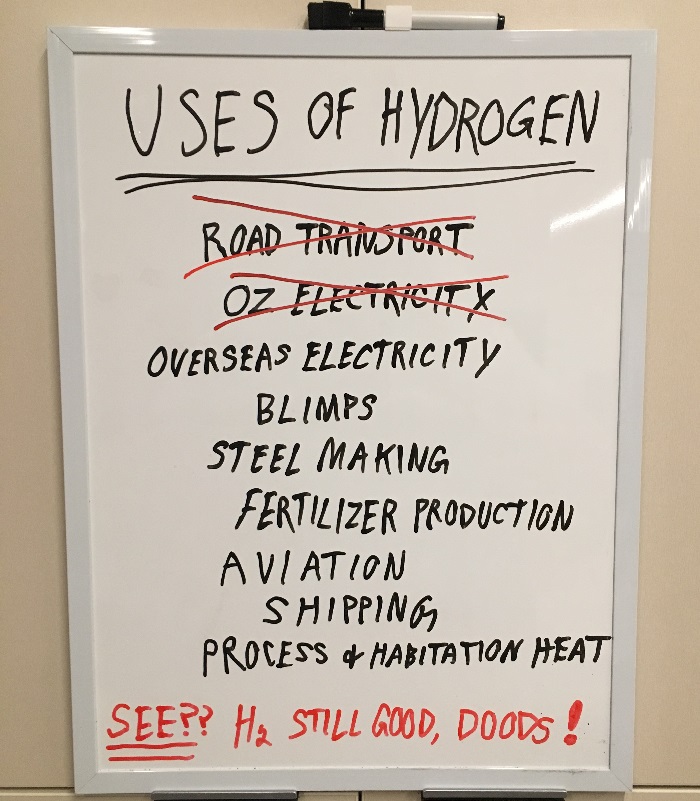 USES OF HYDROGEN
ROAD TRANSPORT
OZ ELECTRICITY
OVERSEAS ELECTRICITY
BLIMPS
STEEL MAKING
FERTILIZER PRODUCTION
AVIATION
SHIPPING
PROCESS & HABITATION HEAT
SEE?? H₂ STILL GOOD, DOODS!